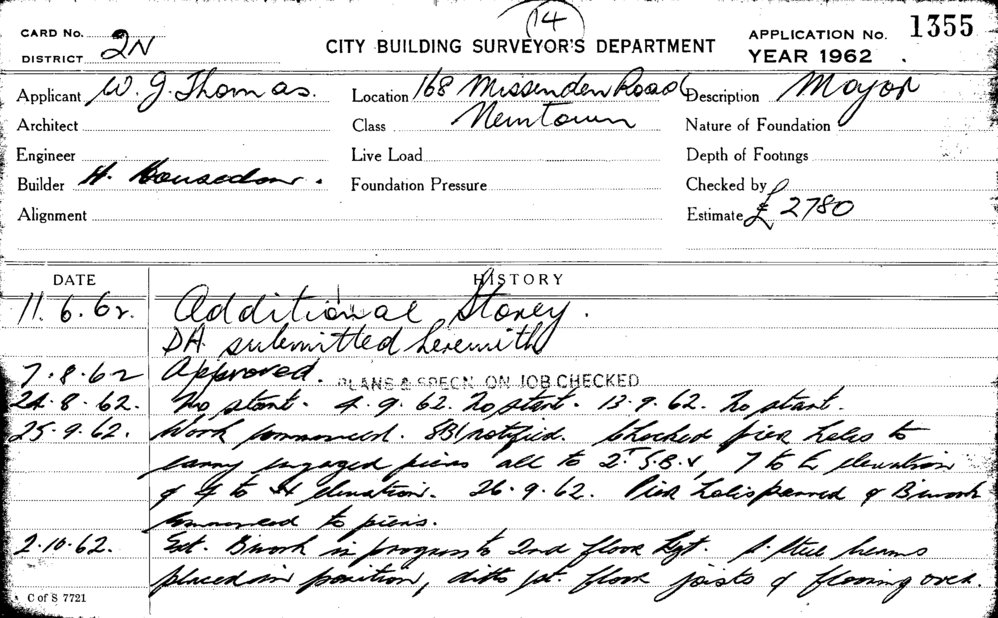 14
CARD No. 2N
DISTRICT
CITY BUILDING SURVEYOR'S DEPARTMENT
APPLICATION No. 1355
YEAR 1962
Applicant W. J. Thomas. Location 168 Missenden Road Description Mayor
Architect Class Newtown Nature of Foundation
Engineer Live Load Depth of Footings
Builder H. Foundation Pressure Checked by
Alignment Estimate £ 2780
DATE HISTORY
11.6.62. Additional Storey.
DA. submitted herewith
7.8.62 Approved. PLANS & SPECN. ON JOB CHECKED
24.8.62. No start. 4.9.62. No start. 13.9.62. No start.
25.9.62. Work commenced. SBI notified. Checked pier holes to
carry engaged piers all to 2' S.B.V, 7 to E elevation
& 4 to elevation. 26.9.62. Pier holes passed & B'work
commenced to piers.
2.10.62. Ext. B'work in progress to 2nd floor hgt. Steel beams
placed in position, ditto 1st. floor joists & flooring over.
C of S 7721